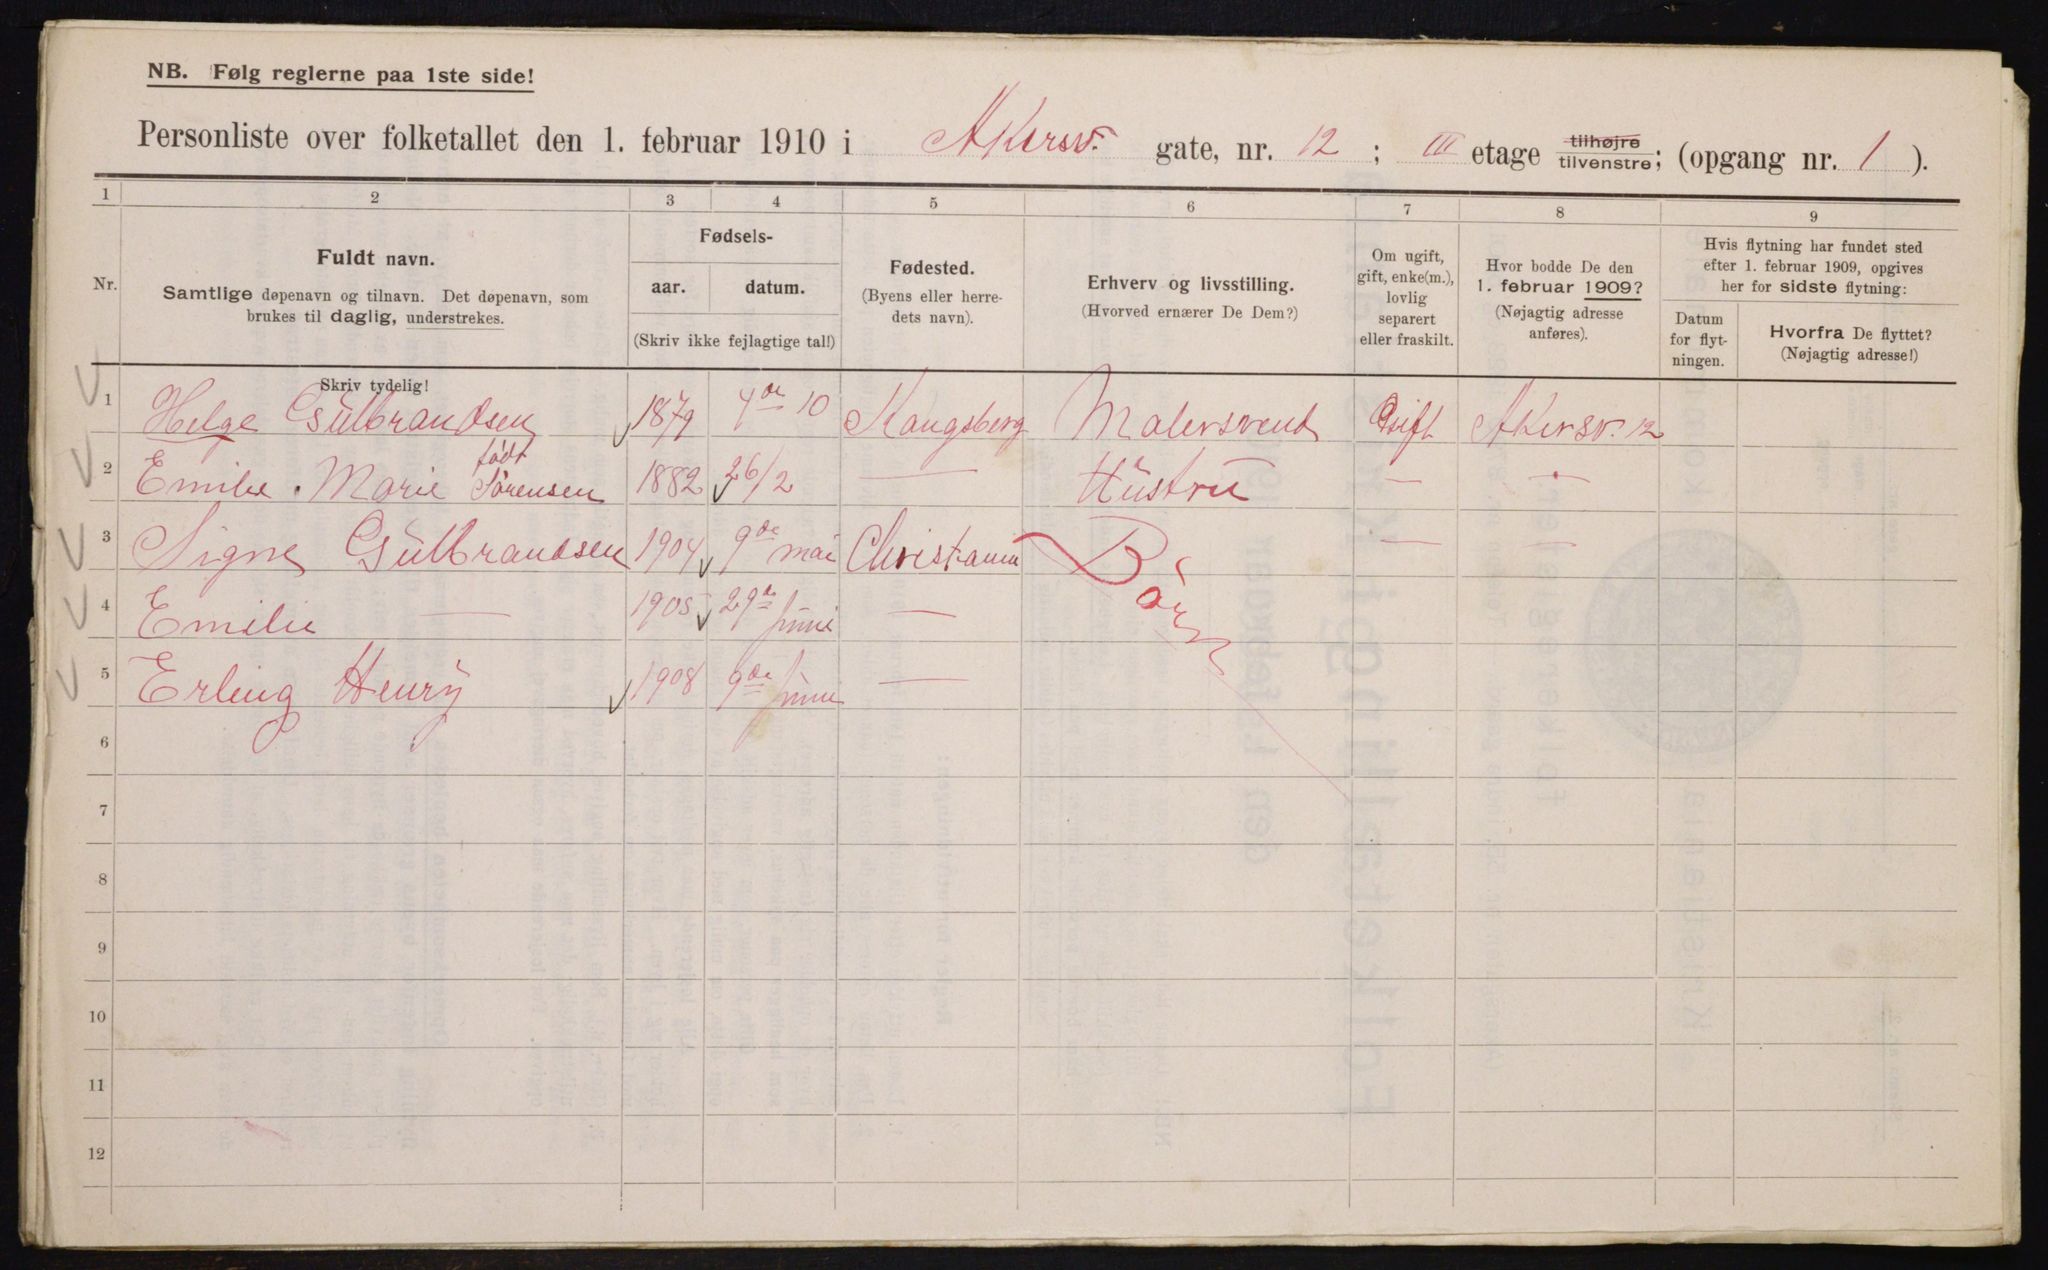 NB. Følg reglerne paa 1ste side!
Personliste over folketallet den 1. februar 1910 i Akersv. gate, nr. 12 ; III etage tilhøjre tilvenstre; (opgang nr. 1 ).
1 2 3 4 5 6 7 8 9
Nr.
Fuldt navn.
Samtlige døpenavn og tilnavn. Det døpenavn, som
brukes til daglig, understrekes.
Skriv tydelig!
Fødsels-
aar. datum.
(Skriv ikke fejlagtige tal!)
Fødested.
(Byens eller herre-
dets navn).
Erhverv og livsstilling.
(Hvorved ernærer De Dem?)
Om ugift,
gift, enke(m.),
lovlig
separert
eller fraskilt.
Hvor bodde De den
1. februar 1909?
(Nøjagtig adresse
anføres).
Hvis flytning har fundet sted
efter 1. februar 1909, opgives
her for sidste flytning:
Datum
for flyt-
ningen.
Hvorfra De flyttet?
(Nøjagtig adresse!)
1 Helge Gulbrandsen 1879 4de 10 Kongsberg Malersvend Gift Akersv. 12
født
2 Emilie Marie Sørensen 1882 26/2 — Hustru — —
3 Signe Gulbrandsen 1904 9de mai Christiania Børn — —
4 Emilie — 1905 29de juni —
5 Erling Henry 1908 9de juni —
6
7
8
9
10
11
12